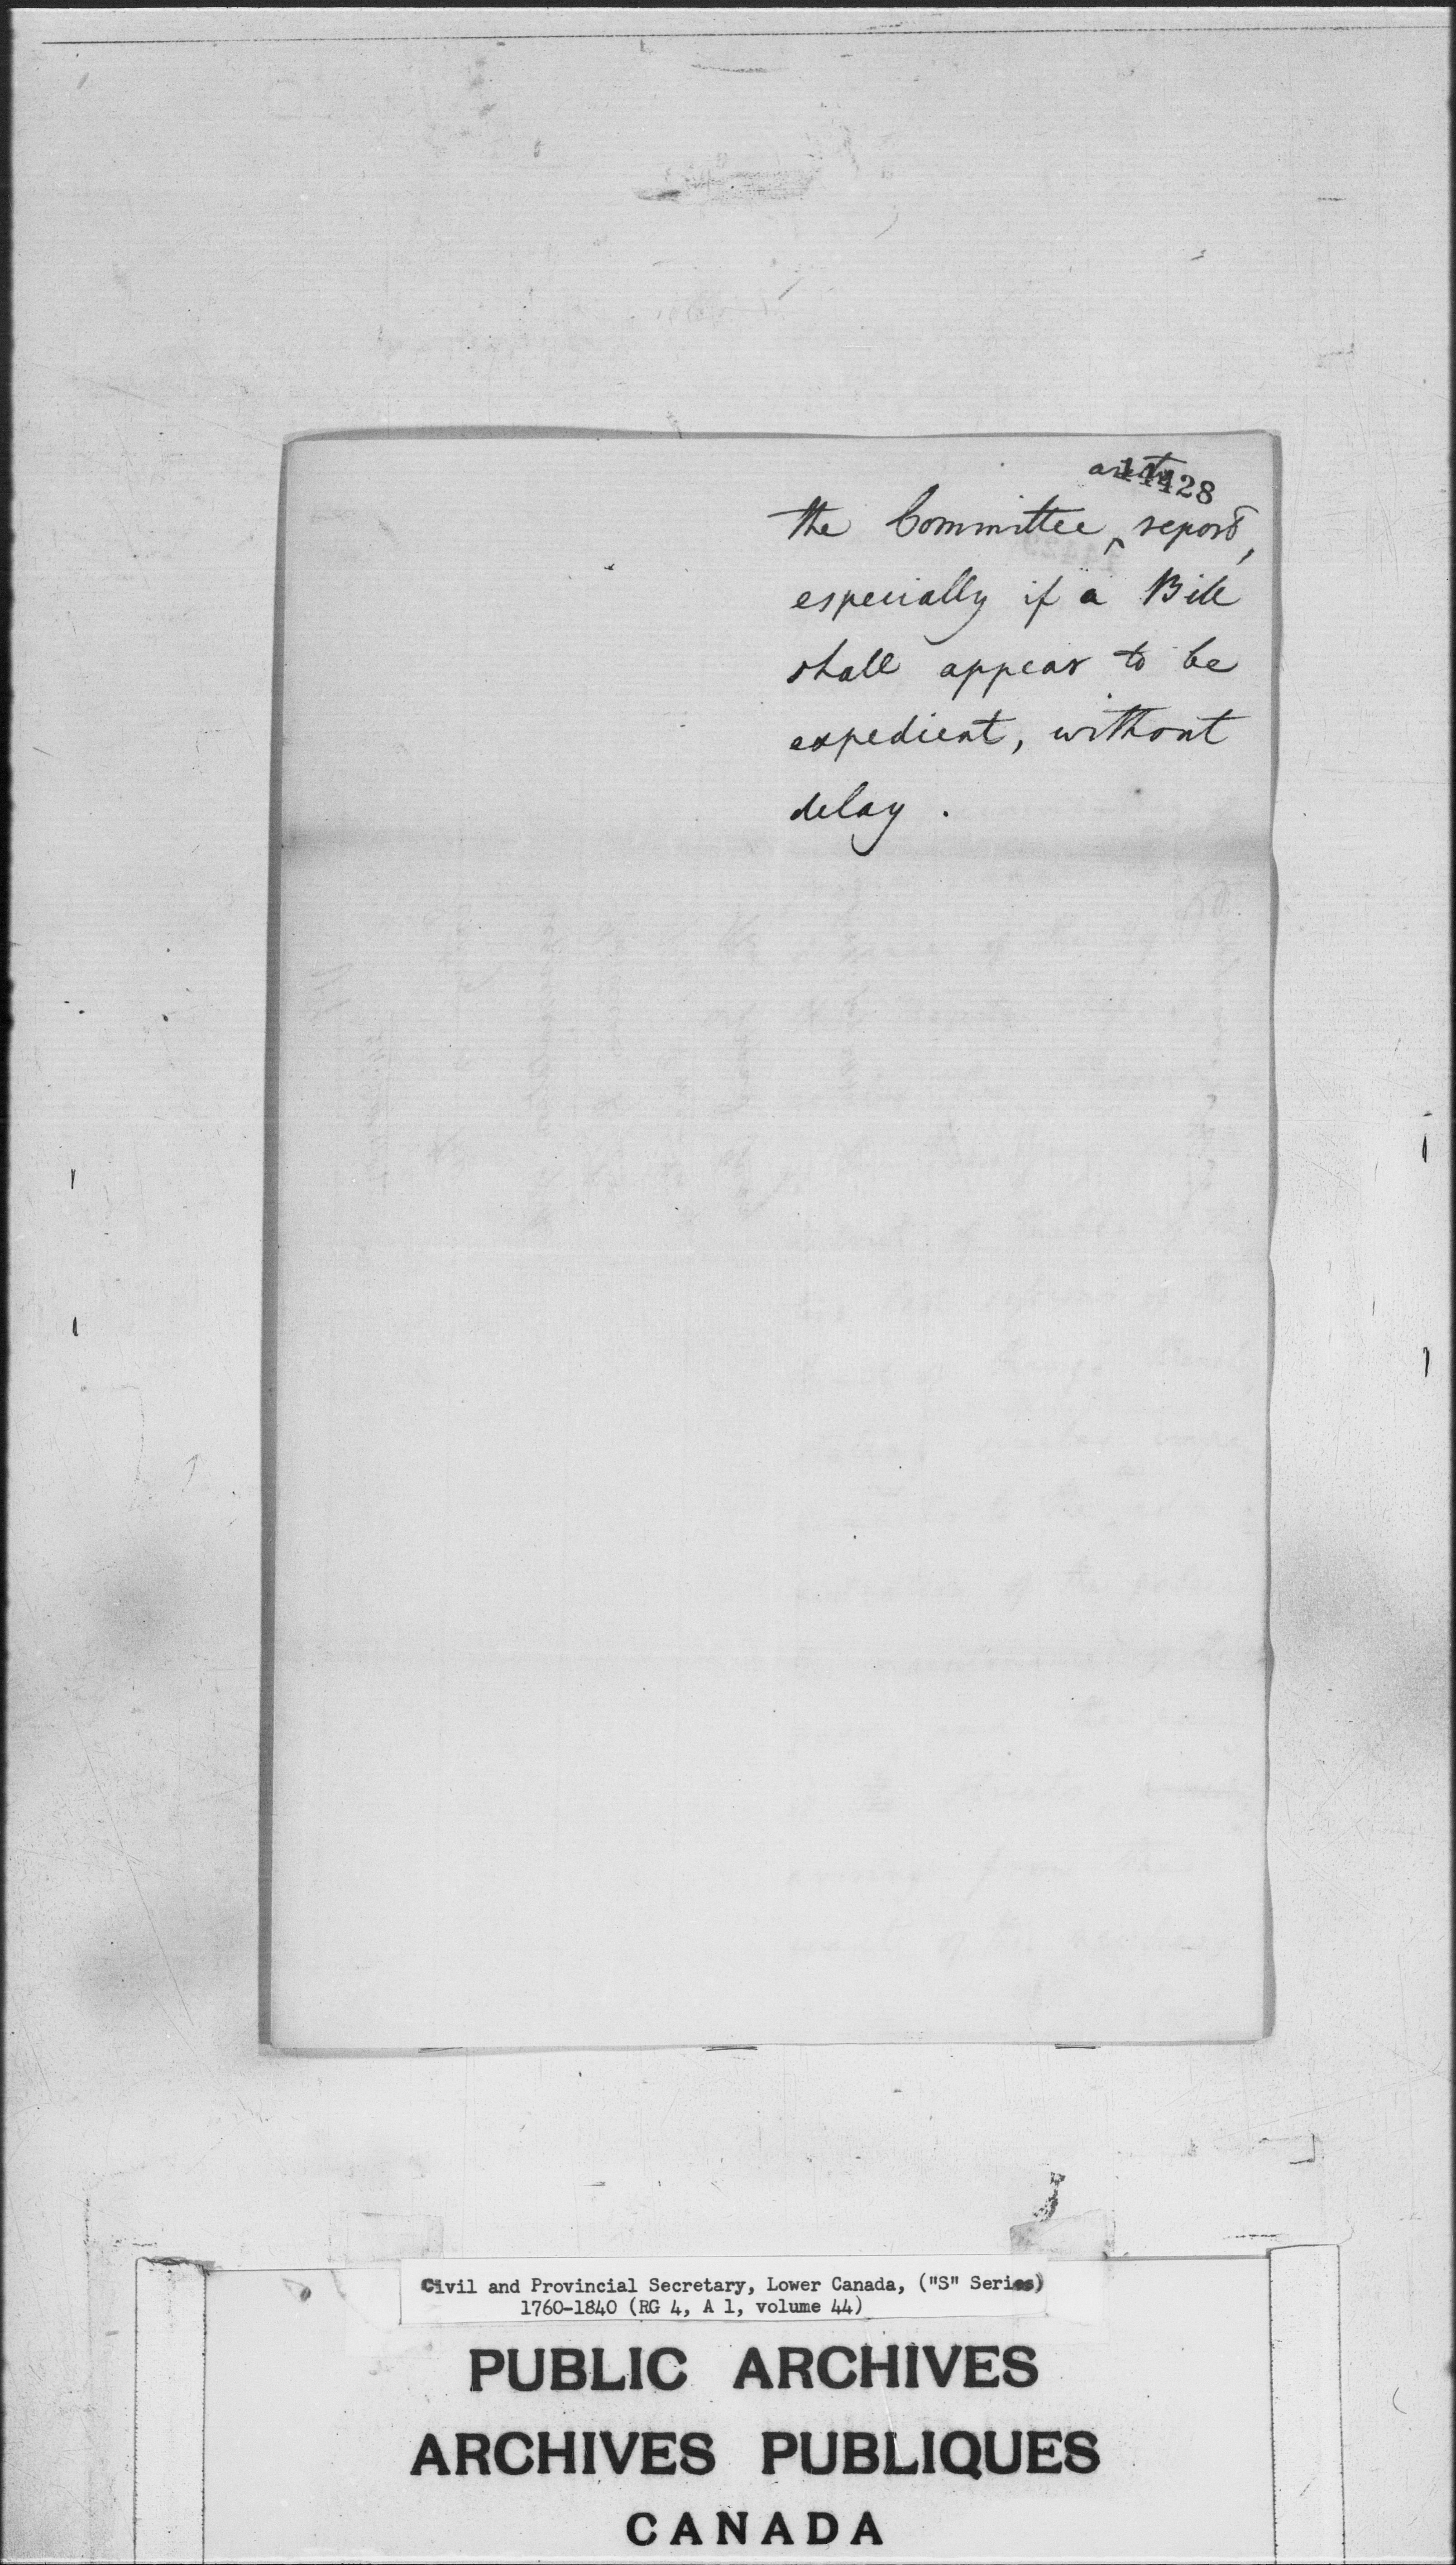 14428
the Committee ‸ report,
especially if a Bill
shall appear to be
expedient, without
delay.
Civil and Provincial Secretary, Lower Canada, ("S" Series)
1760-1840 (RG 4, A 1, volume 44)
PUBLIC ARCHIVES
ARCHIVES PUBLIQUES
CANADA